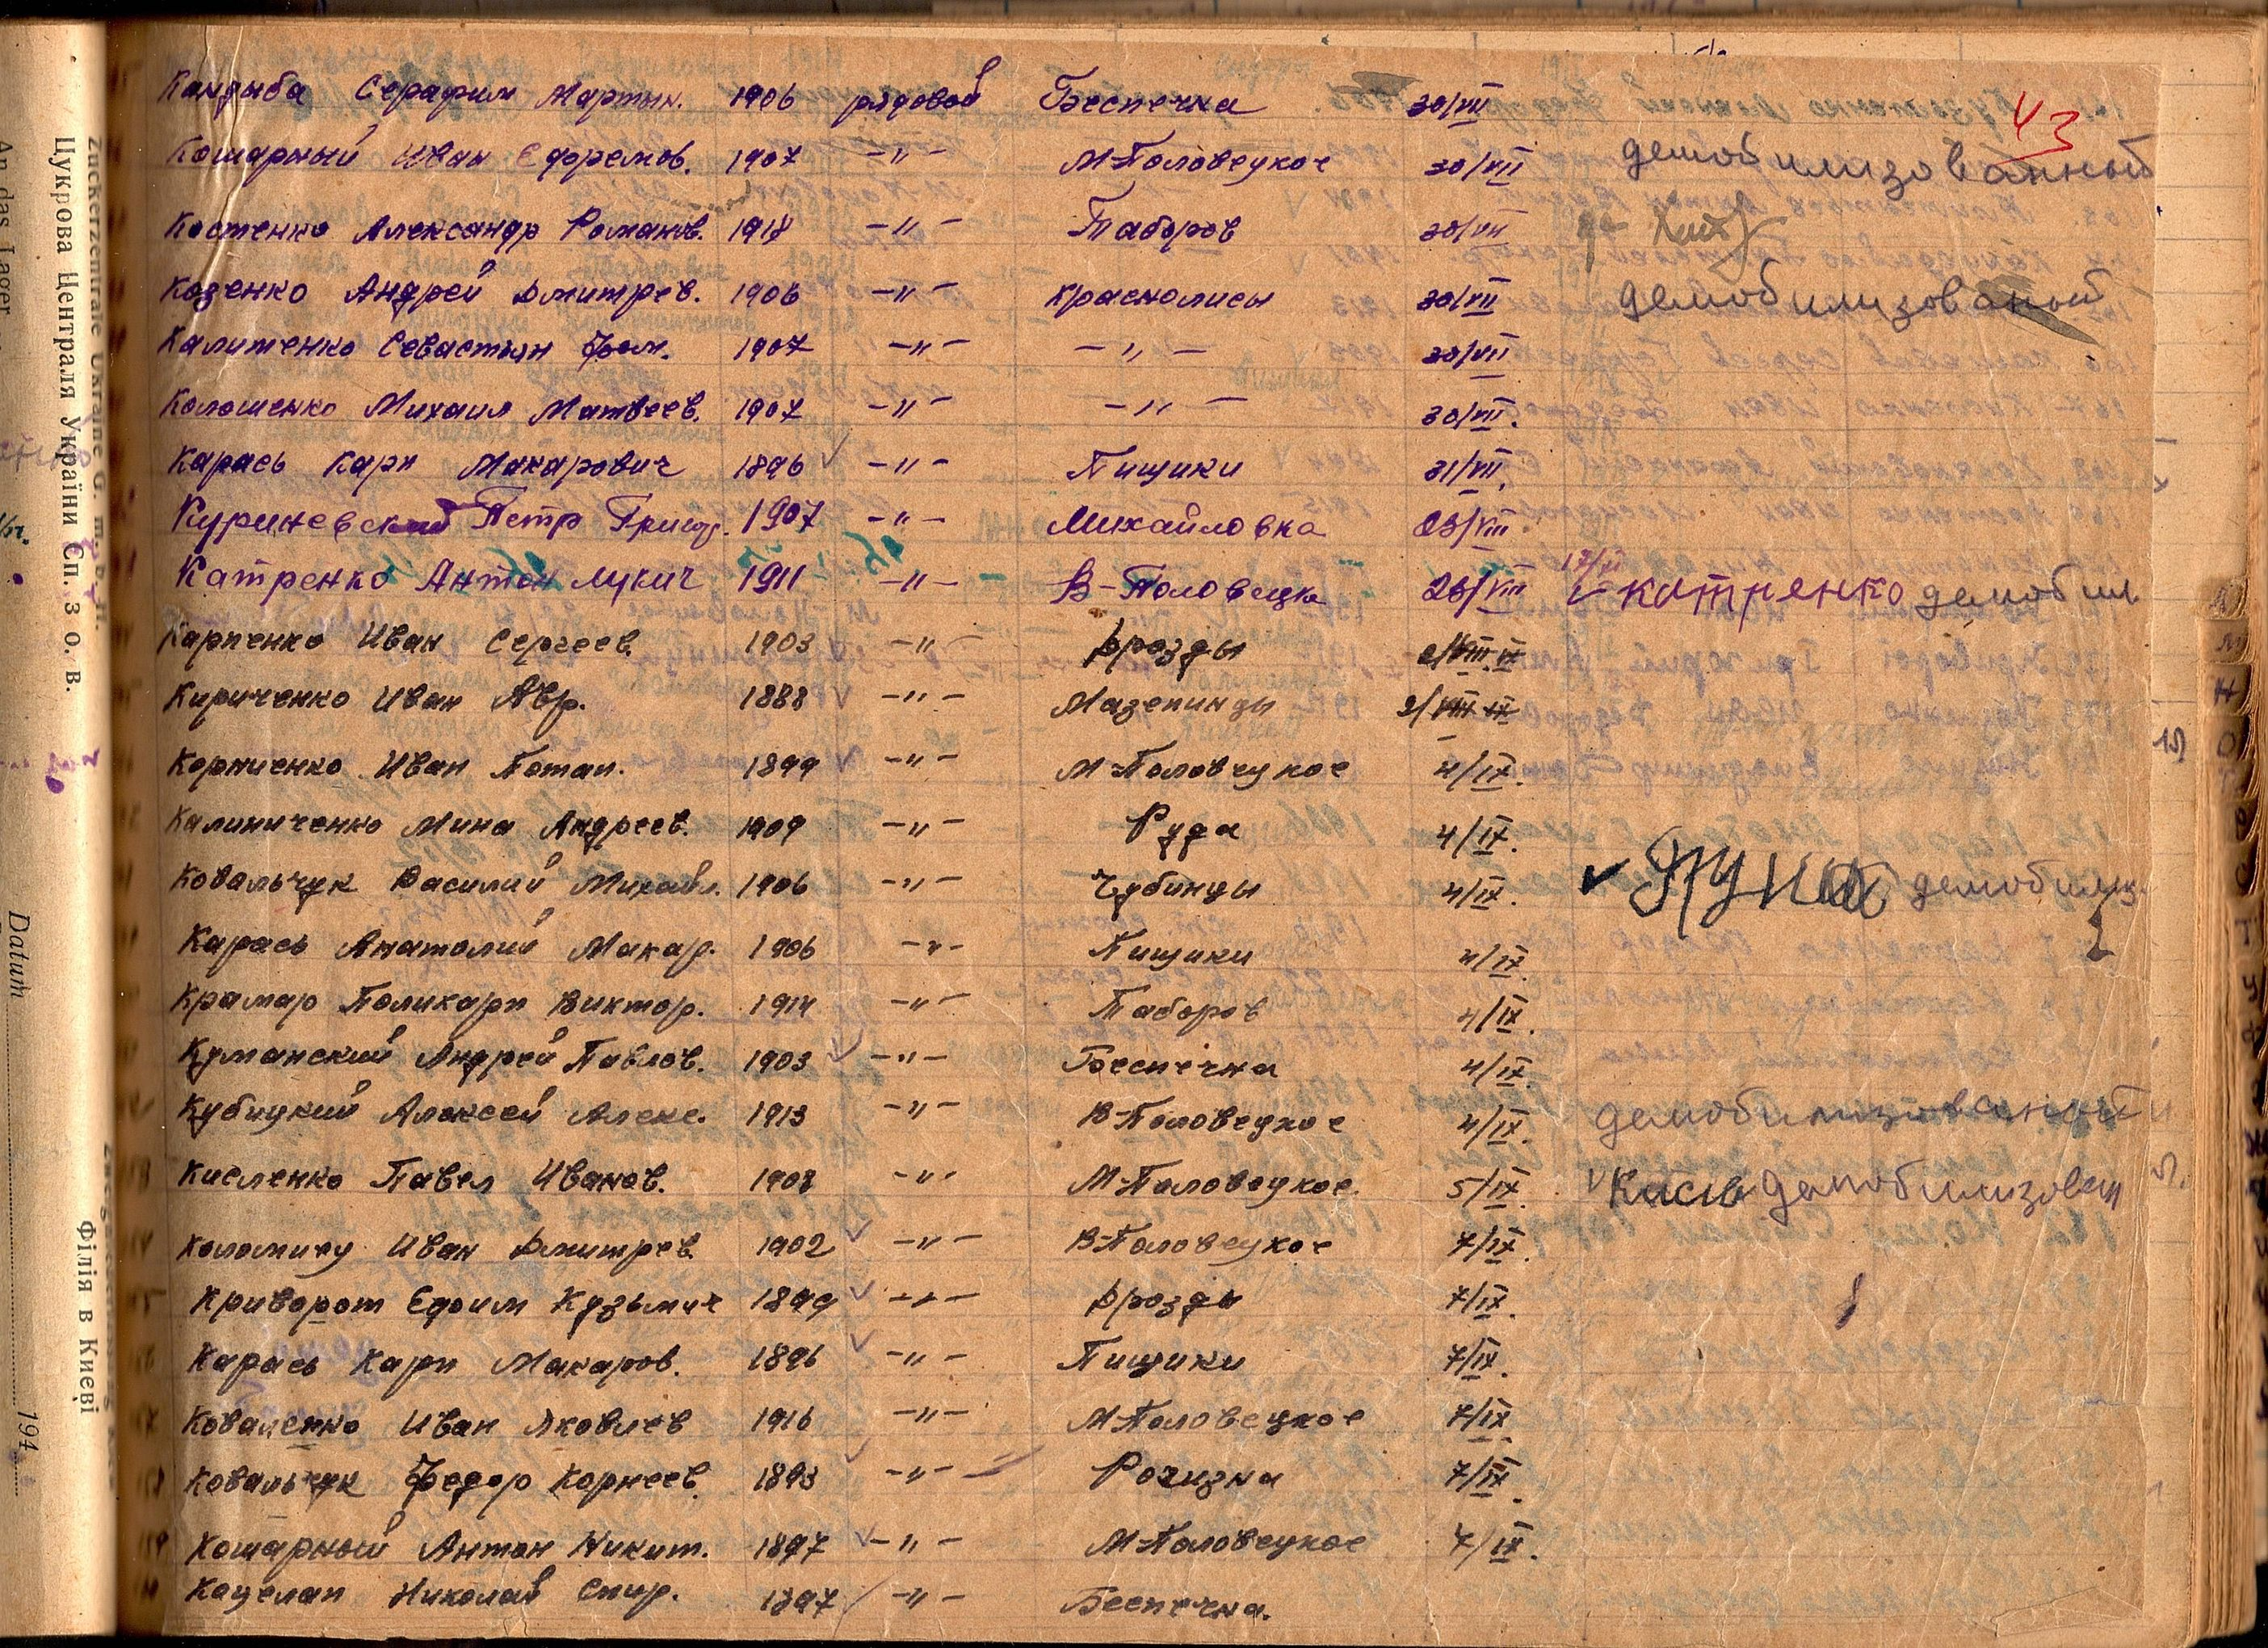 Кандыба Серафим Мартын. 1906 рядовой Беспечна 30/VII
43
Кошарный Иван Ефремов. 1907 -"- М-Половецкое 30/VII демобилизованный
Костенко Александр Романов. 1918 -"- Таборов 30/VII
Козенко Андрей Дмитрев. 1906 -"- Краснолисы 30/VII демобилизованый
Калитенко Севастьян Фом. 1907 -"- -"- 30/VII
Колошенко Михаил Матвеев. 1907 -"- -"- 30/VII.
Карась Карп Макарович 1896 -"- Пищики 31/VII.
Куриневский Петр Григ. 1907 -"- Михайловка 23/VIII.
Катренко Антон Лукич 1911 -"- В-Половецке 26/VIII 17/XI катренко демобил
Карпенко Иван Сергеев. 1903 -"- Дрозды 2/VIII IX
Кириченко Иван Авр. 1888 -"- Мазепинцы 2/VIII IX
Корниенко Иван Потап. 1899 -"- М-Половецкое 4/IX.
Калиниченко Мина Андреев. 1909 -"- Руда 4/IX.
Ковальчук Василий Михайл. 1906 -"- Чубинцы 4/IX. демобилиз
Карась Анатолий Макар. 1906 -"- Пищики 4/IX.
Крамар Поликарп Виктор. 1914 -"- Таборов 4/IX.
Куманский Андрей Павлов. 1903 -"- Беспечна 4/IX.
Кубицкий Алексей Алекс. 1913 -"- В-Половецкое 4/IX. демобилизованый
Кисленко Павел Иванов. 1908 -"- М-Половецкое. 5/IX. Кисів демобилизован
Коломиец Иван Дмитрев. 1902 -"- В-Половецкое 7/IX.
Криворот Ефим Кузьмич 1899 -"- Дрозды 7/IX.
Карась Карп Макаров. 1896 -"- Пищики 7/IX.
Коваленко Иван Яковлев 1916 -"- М-Половецкое 7/IX.
Ковальчук Федор Корнеев. 1893 -"- Рогизна 7/IX.
Кошарный Антон Никит. 1897 -"- М-Половецкое 7/IX.
Коцелап Николай Спир. 1897 -"- Беспечна.
Zuckerzentrale Ukraine G. m. b. H.
Цукрова Централя України Сп. з о. в.
Філія в Києві
An das Lager
Datum 194